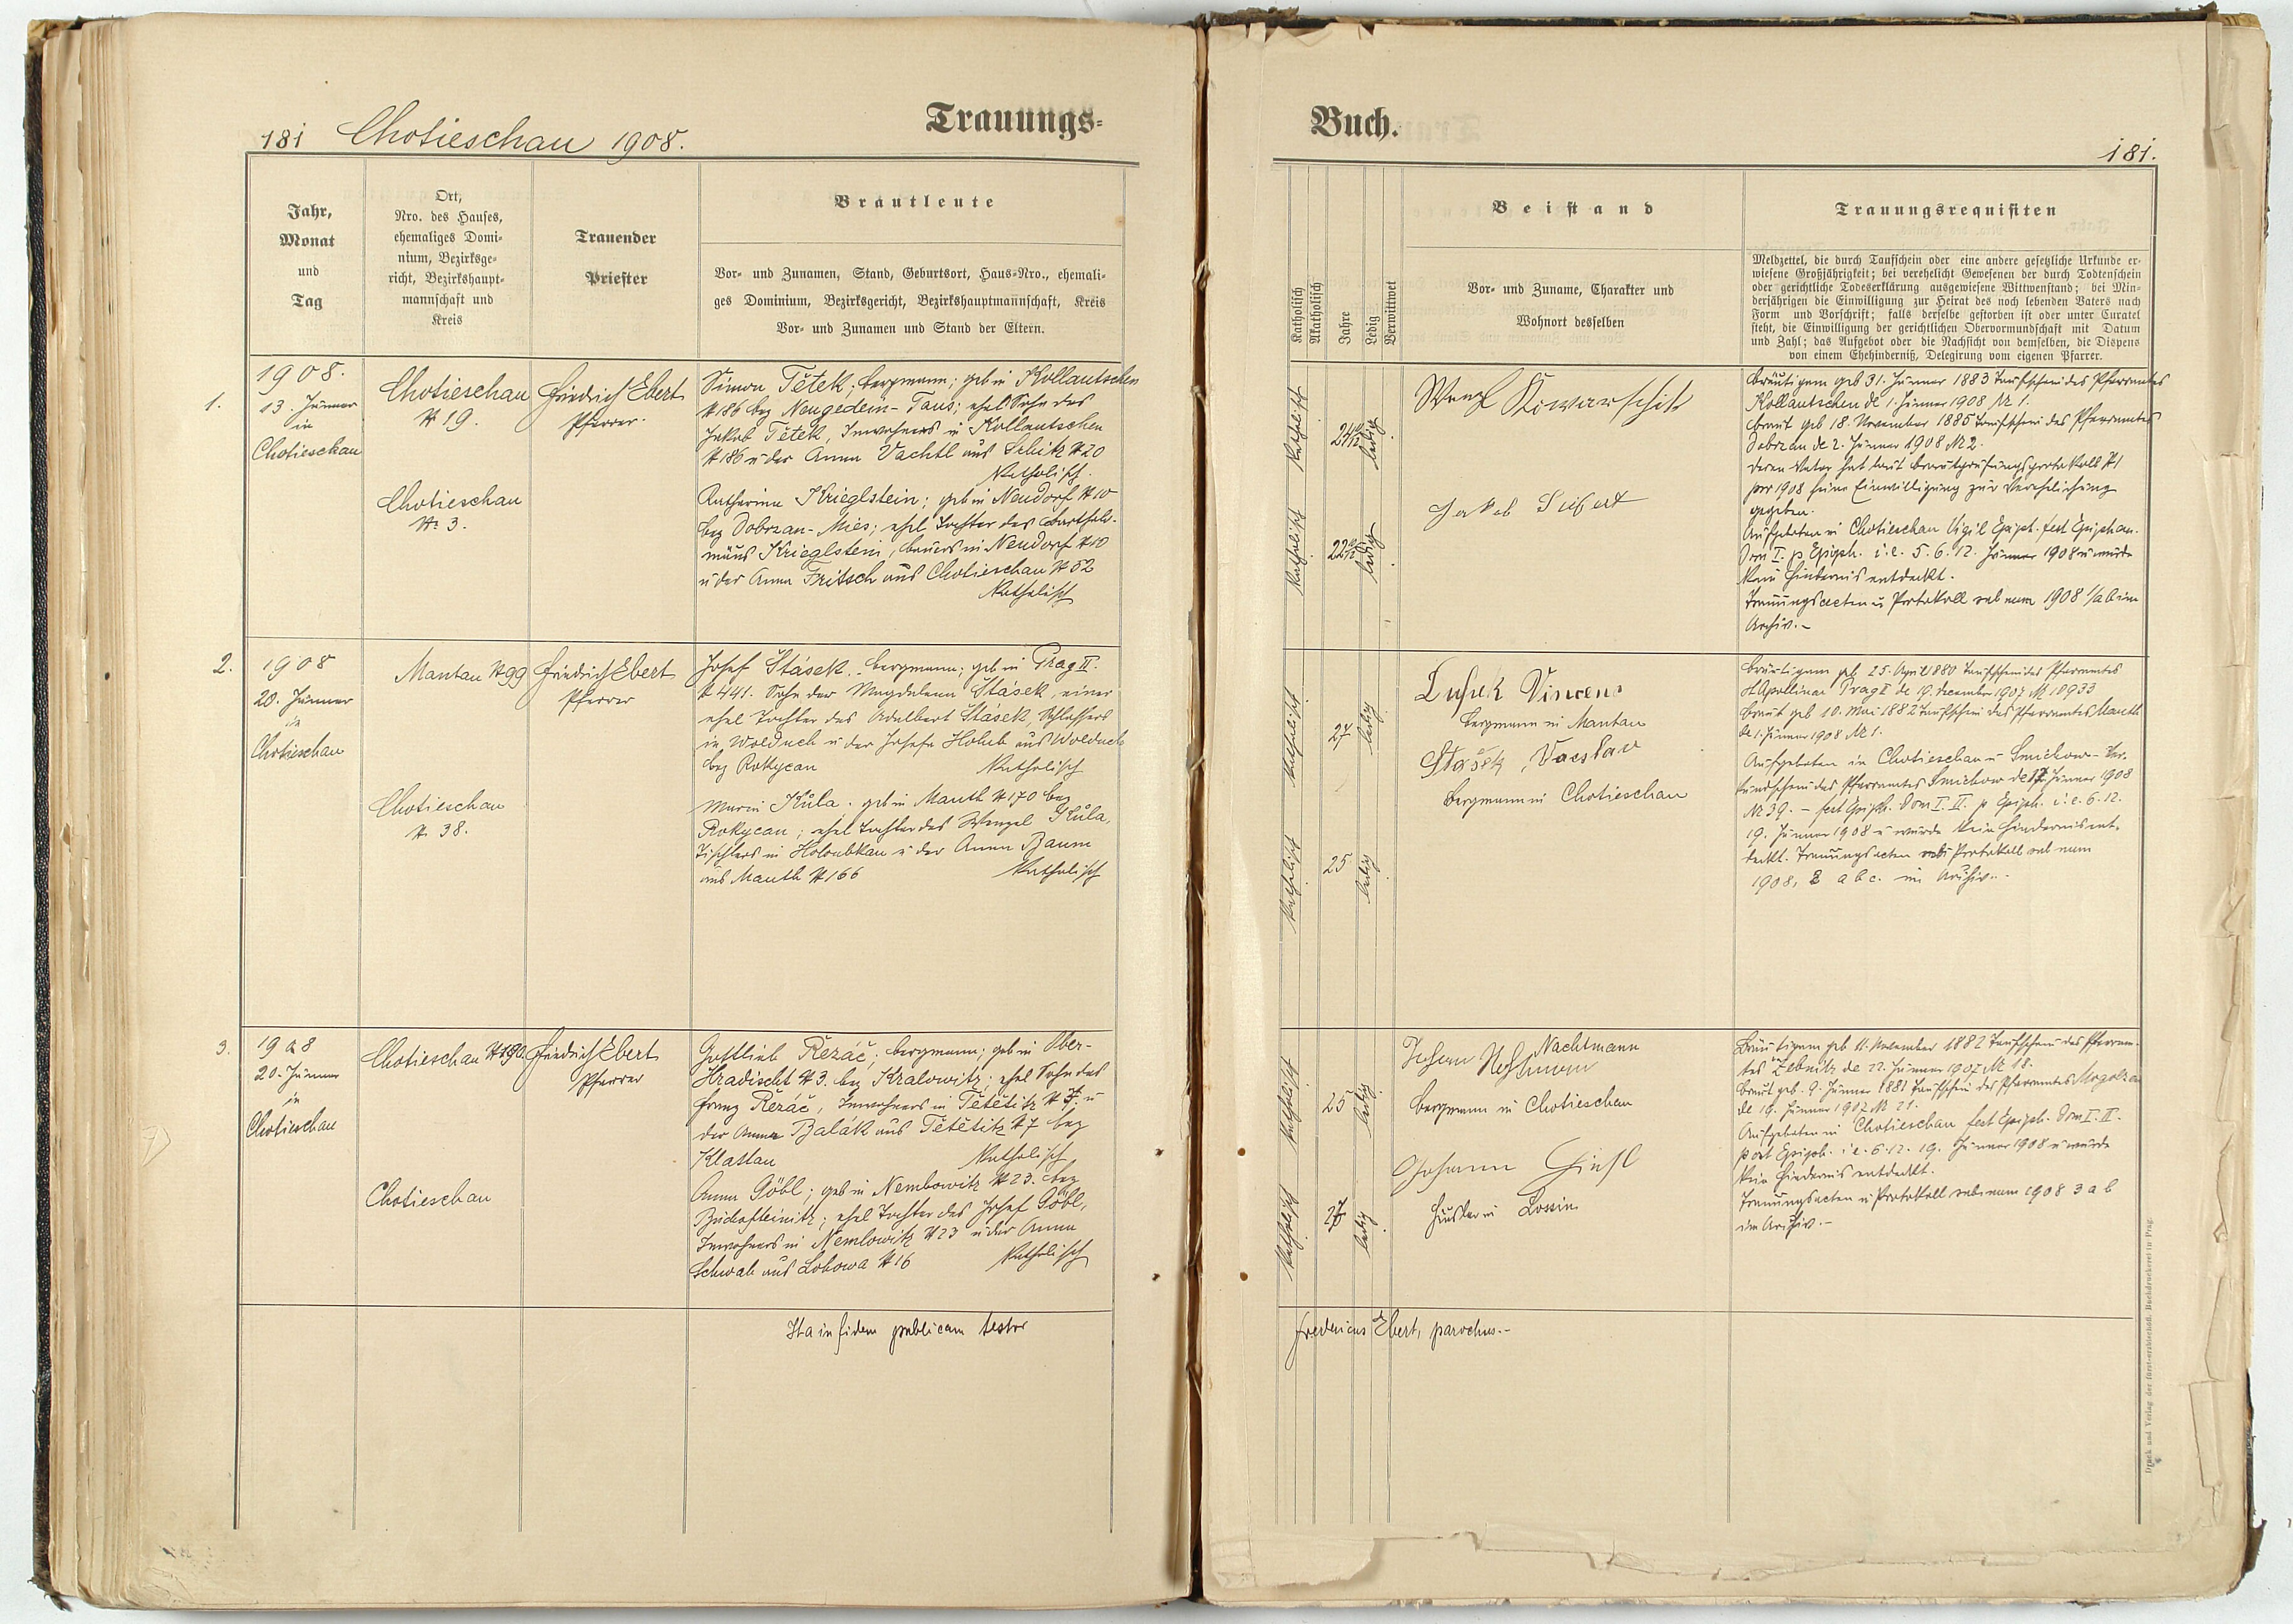 181 Chotieschau 1908.
Trauungs-
Jahr,
Monat
und
Tag
Ort,
Nro. des Hauses,
ehemaliges Domi-
nium, Bezirksge-
richt, Bezirkshaupt-
mannschaft und
Kreis
Trauender
Priester
Brautleute
Vor- und Zunamen, Stand, Geburtsort, Haus-Nro., ehemali-
ges Dominium, Bezirksgericht, Bezirkshauptmannschaft, Kreis
Vor- und Zunamen und Stand der Eltern.
1.
1908.
13. Jänner
in
Chotieschau
Chotieschau
N 19.
Chotieschau
N. 3.
Friedrich Ebert
Pfarrer.
Simon Tětek; Bergmann; geb in Kollautschen
N 186 bez Neugedein-Taus; ehel Sohn des
Jakob Tětek, Inwohners in Kollautschen
N 186 u der Anna Vachtl aus Sekitz N 20
Katholisch.
Katharina Krieglstein; geb in Neudorf N 10
bez Dobrzan-Mies; ehel Tochter des Bartholo-
mäus Krieglstein, Bauers in Neudorf N 10
u der Anna Fritsch aus Chotieschau N 52
Katholisch
2.
1908
20. Jänner
in
Chotieschau
Mantau N 99
Chotieschau
N. 38.
Friedrich Ebert
Pfarrer
Josef Stásek. Bergmann; geb in Prag II.
N 441. Sohn der Magdalena Stásek, einer
ehel Tochter des Adalbert Stásek, Schlossers
in Wolduch u der Josefa Holub aus Wolduch
bez Rokycan
Katholisch
Maria Kůla; geb in Mauth N 170 bez
Rokycan; ehel Tochter des Wenzel Kůla,
Tischlers in Holoubkau u der Anna Baum
aus Mauth N 166
Katholisch
3.
1908
20. Jänner
in
Chotieschau
Chotieschau N 190.
Chotieschau
Friedrich Ebert
Pfarrer
Gottlieb Řezáč; Bergmann; geb in Ober-
Hradischt N 3. bez Kralowitz; ehel Sohn des
Franz Řezáč, Inwohners in Tětětitz N 7. u
der Anna Balák aus Tětětitz N 7 bez
Klattau
Katholisch
Anna Göbl; geb in Nemlowitz N 23. bez
Bischofteinitz; ehel Tochter des Josef Göbl,
Inwohners in Nemlowitz N 23 u der Anna
Schwab aus Lohowa N 16
Katholisch
Ita in fidem publicam testor
Buch.
181.
Katholisch
Akatholisch
Jahre
Ledig
Verwittwet
Beistand
Vor- und Zuname, Charakter und
Wohnort desselben
Trauungsrequisiten
Meldzettel, die durch Taufschein oder eine andere gesetzliche Urkunde er-
wiesene Großjährigkeit; bei verehelicht Gewesenen der durch Todtenschein
oder gerichtliche Todeserklärung ausgewiesene Wittwenstand; bei Min-
derjährigen die Einwilligung zur Heirat des noch lebenden Vaters nach
Form und Vorschrift; falls derselbe gestorben ist oder unter Curatel
steht, die Einwilligung der gerichtlichen Obervormundschaft mit Datum
und Zahl; das Aufgebot oder die Nachsicht von demselben, die Dispens
von einem Ehehinderniß, Delegirung vom eigenen Pfarrer.
Katholisch
ledig
Katholisch
ledig
Wenzl Kowarschik
Jakob Seifert
Bräutigam geb 31. Jänner 1883 Taufschein des Pfarramtes
Kollautschen de 1. Jänner 1908 Nr 1.
Braut geb 18. November 1885 Taufschein des Pfarramtes
Dobrzan de 2. Jänner 1908 Nr 2.
Deren Vater hat laut Brautprüfungsprotokoll N 1
pro 1908 seine Einwilligung zur Verehelichung
gegeben.
Aufgeboten in Chotieschau Vigil Epiph. fest Epiphan.
Dom I. p Epiph. i. e. 5. 6. 12. Jänner 1908 u wurde
kein Hindernis entdeckt.
Trauungsacten u Protokoll sub num 1908 1/a b im
Archiv.-
Katholisch
27
ledig
Katholisch
25
ledig
Lušek Vincenc
Bergmann in Mantau
Stašek, Václav
Bergmann in Chotieschau
Bräutigam geb. 25. April 1880 Taufschein des Pfarramtes
St Apollinar Prag II de 19. December 1907 Nr 10933
Braut geb 10. Mai 1882 Taufschein des Pfarramtes Mauth
de 1. Jänner 1908 Nr 1.
Aufgeboten in Chotieschau u Smichow - Ver-
kündschein des Pfarramtes Smichow de 17. Jänner 1908
Nr 39. - fest Epiph. Dom I. II. p Epiph. i. e. 6. 12.
19. Jänner 1908 u wurde kein Hindernis ent-
deckt. Trauungsacten Protokoll sub num
1908, 2 a b c. im Archiv.-
Katholisch
25
ledig
Katholisch
ledig
Nachtmann
Bergmann in Chotieschau
Johann
Häusler in Lossin
Bräutigam geb 11. November 1882 Taufschein des Pfarram-
tes in Žebnitz de 22. Jänner 1907 Nr 18.
Braut geb. 9. Jänner 1881 Taufschein des Pfarramtes Mogolzen
de 19. Jänner 1907 Nr 21.
Aufgeboten in Chotieschau fest Epiph. Dom I. II.
post Epiph. i e. 6. 12. 19. Jänner 1908 u wurde
kein Hindernis entdeckt.
Trauungsacten u Protokoll sub num 1908 3 a b
im Archiv.-
Fredericus Ebert, parochus.-
Druck und Verlag der fürst-erzbischöfl. Buchdruckerei in Prag.